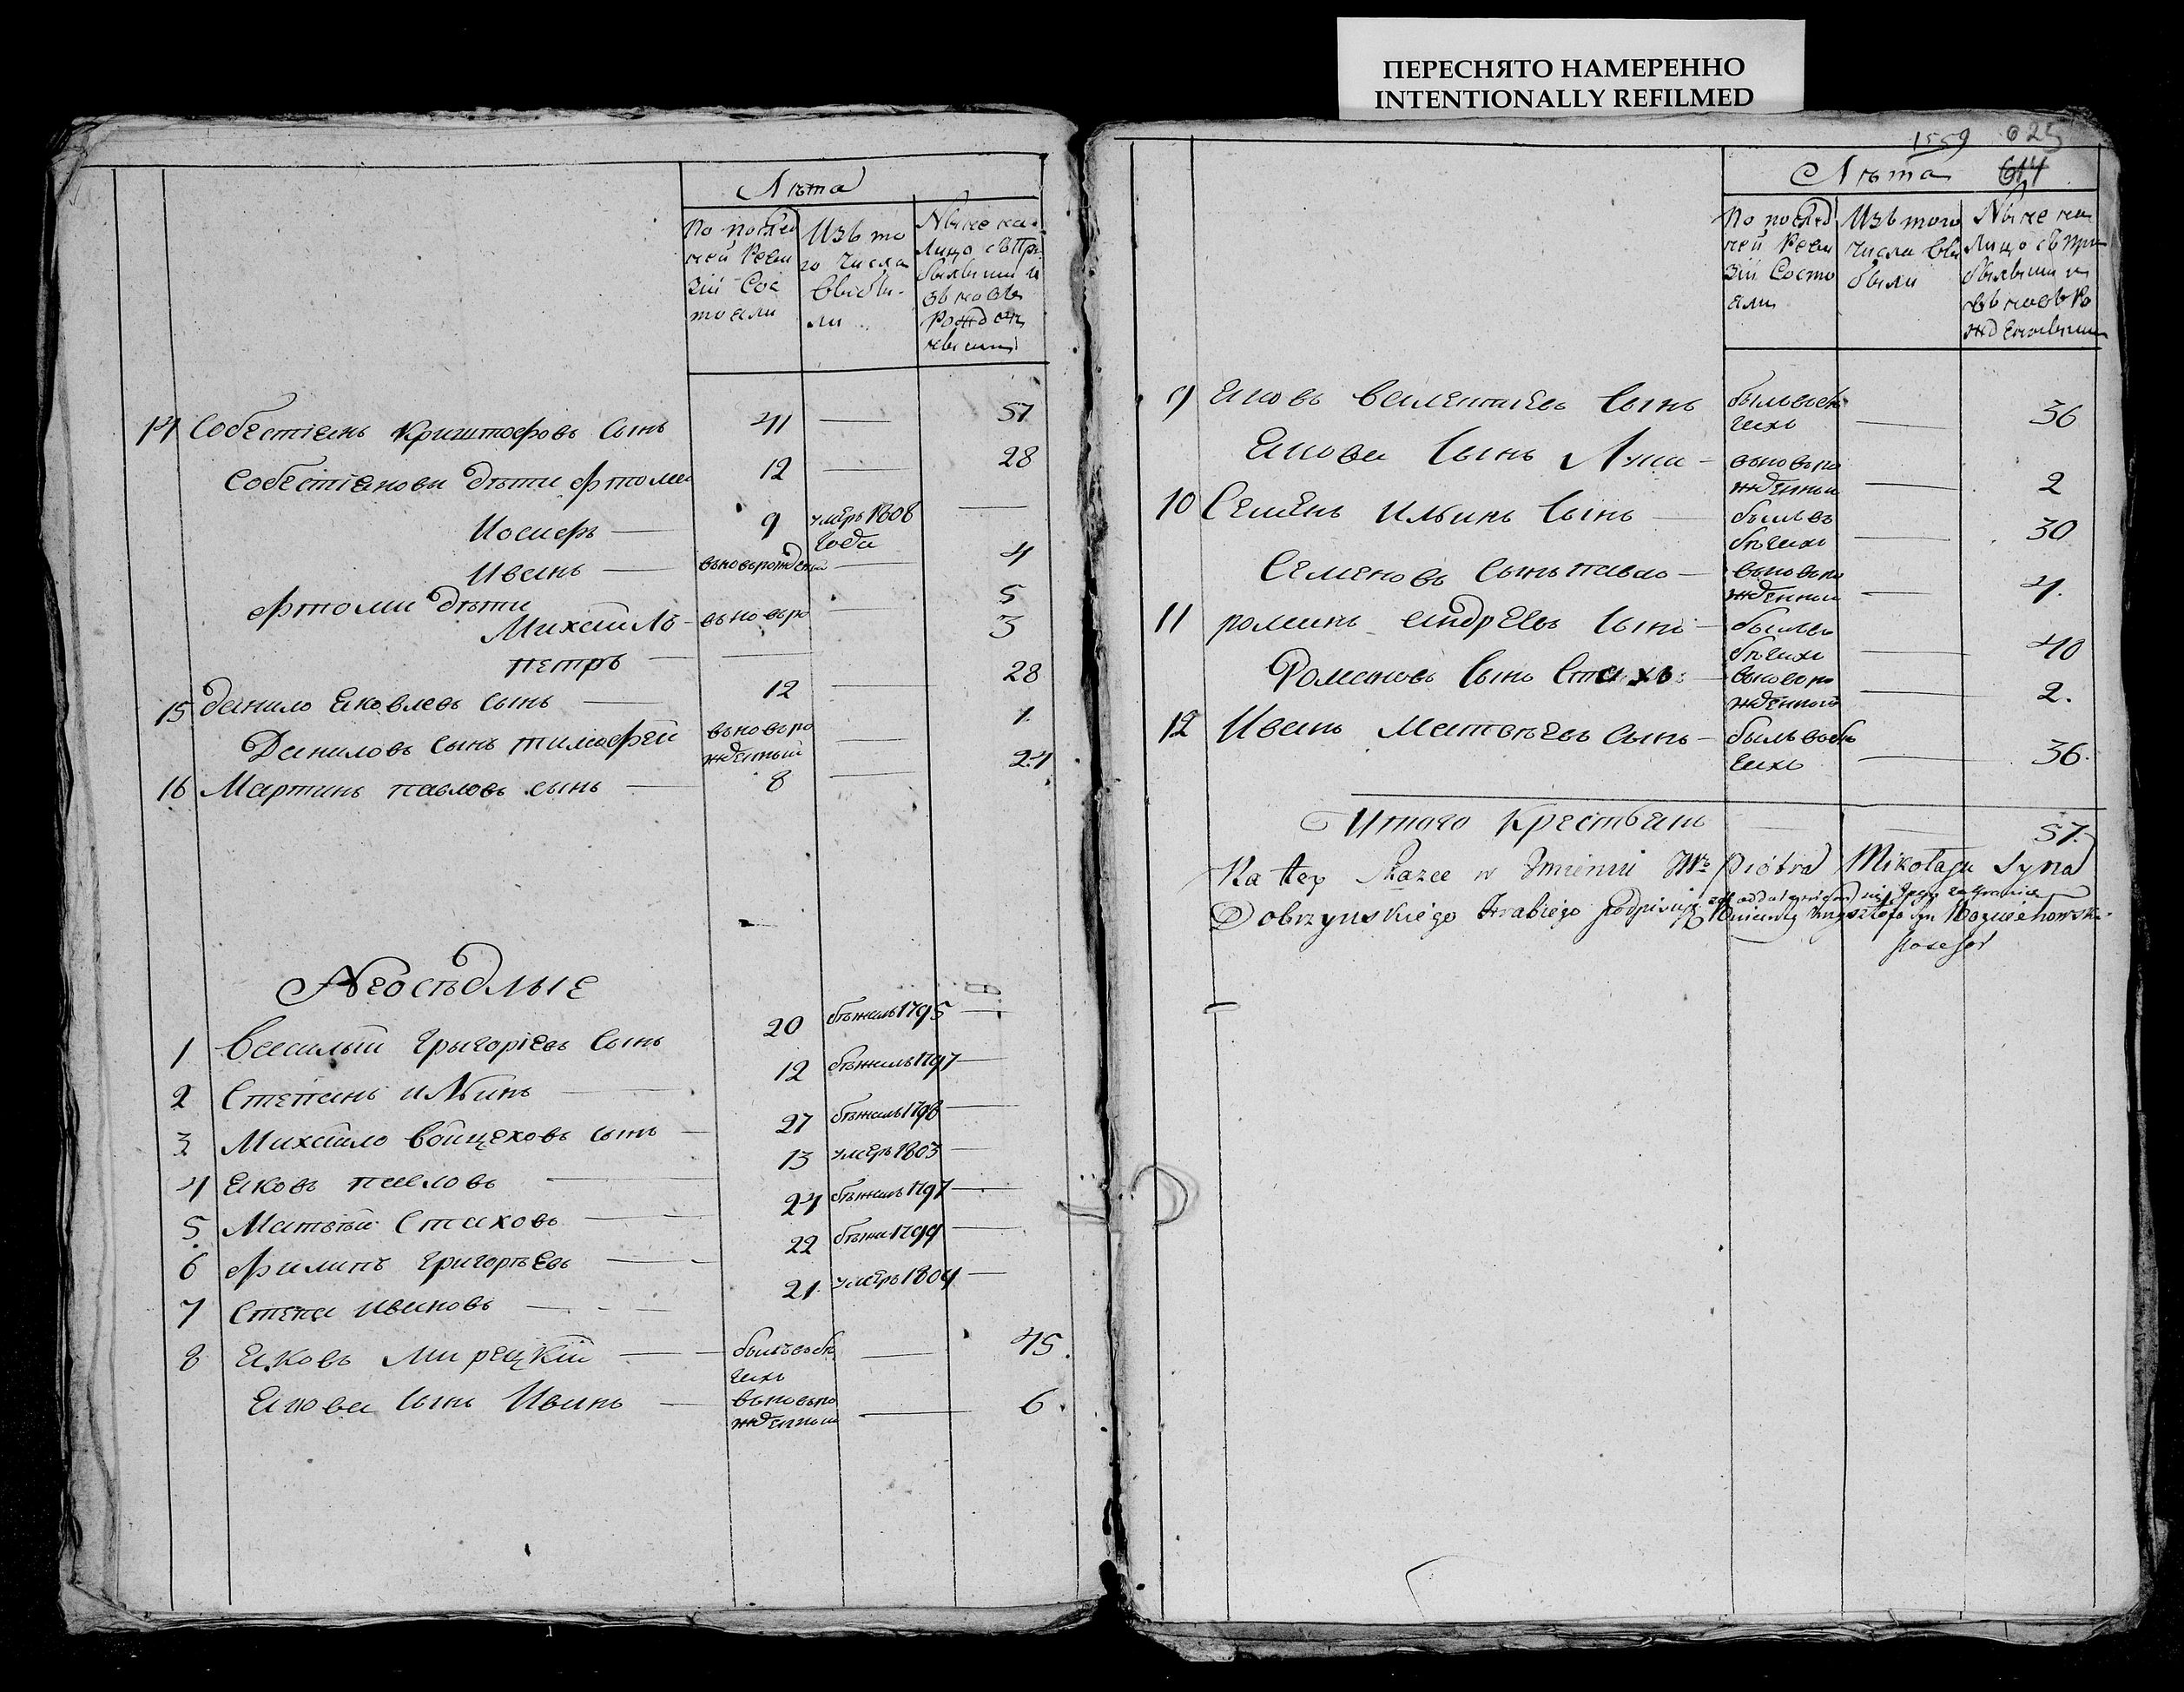 ПЕРЕСНЯТО НАМЕРЕННО
INTENTIONALLY REFILMED
Лѣта
По послед
ней Реви
зіи Сос
тояли
Изъ то
го числа
выбы-
ли
Ныне на
лицо съ при
былыми и
вновь
рожден
ными
14 Собестіянъ Криштофовъ сынъ 41 — 57
Собестіяновы дѣти Фтома 12 — 28
Иосифъ — 9 умеръ 1808 года —
Иванъ — вновьрожденъ — 4
Фтомы дѣти
Михайла - вновьро — 5
петръ — — 3
15 данило Яковлевъ сынъ — 12 — 28
Даниловъ сынъ тимофей вновьро жденный — 1
16 Мартинъ павловъ сынъ — 8 — 24
Неосѣдлые
1 Василый Григоріевъ сынъ 20 бѣжалъ 1795 —
2 Степанъ ильинъ — 12 бѣжалъ 1797 —
3 Михайло войцеховъ сынъ — 27 бѣжалъ 1798 —
4 Яковъ павловъ — 13 умеръ 1803 —
5 Матвѣй Стаховъ — 24 бѣжалъ 1797 —
6 Филипъ Григорьевъ — 22 бѣжа 1799 —
7 Степа ивановъ — 21 умеръ 1804 —
8 Яковъ Мирецкій — былъ въ бѣ гахъ — 45.
Якова сынъ Иванъ — вновьро жденный — 6.
1559 625
614
Лѣта
По послед
ней Реви
зіи Состо
яли
Изъ того
числа вы
были
Ныне на
лицо съ при
былыми и
вновь ро
жденными
9 Яковъ Валентіевъ сынъ былъ въ бѣ гахъ — 36
Якова сынъ Лука - вновьро жденный — 2
10 Семенъ ильинъ сынъ — былъ въ бѣгахъ — 30
Семеновъ сынъ павло — вновьро жденный — 4.
11 романъ андреевъ сынъ - былъ въ бѣгахъ — 40
Романовъ сынъ Стахъ вновьро жденный — 2.
12 Иванъ Матвѣевъ сынъ - былъ въ бѣ гахъ — 36.
Итого крестьянъ — — 57.
Na tey Skazce w Imieniu Piotra Mikołaja Syna
Dobrzynskiego Hrabiego Podpisuję Krzysztofa Syn
Posesor